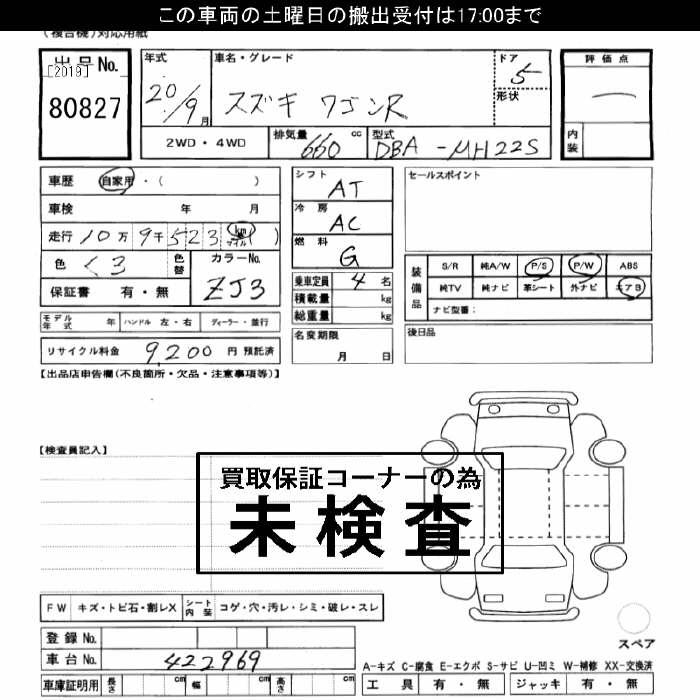 この車両の土曜日の搬出受付は17:00まで
(複合機)対応用紙
出品No.
[2019]
80827
年式
20/9月
車名・グレード
スズキ ワゴンR
ドア
5
形状
評価点
内装
2WD・4WD
排気量 660 cc
型式 DBA-MH22S
車歴 自家用・( )
車検 年 月
走行 10万9千523 km マイル ( )
色 くろ 色替
カラーNo.
ZJ3
保証書 有・無
シフト
AT
冷房
AC
燃料
G
乗車定員 4名
積載量 kg
総重量 kg
セールスポイント
装備品
S/R 純A/W P/S P/W ABS
純TV 純ナビ 革シート 外ナビ エアB
ナビ型番:
モデル年式 年 ハンドル 左・右 ディーラー・並行
リサイクル料金 9,200円 預託済
名変期限
月 日
後日品
【出品店申告欄(不良箇所・欠品・注意事項等)】
【検査員記入】
買取保証コーナーの為
未検査
FW キズ・トビ石・割レX シート内装 コゲ・穴・汚レ・シミ・破レ・スレ
スペア
登録No.
車台No. 422969
車庫証明用 長さ cm 幅 cm 高さ cm
A-キズ C-腐食 E-エクボ S-サビ U-凹ミ W-補修 XX-交換済
工具 有・無 ジャッキ 有・無